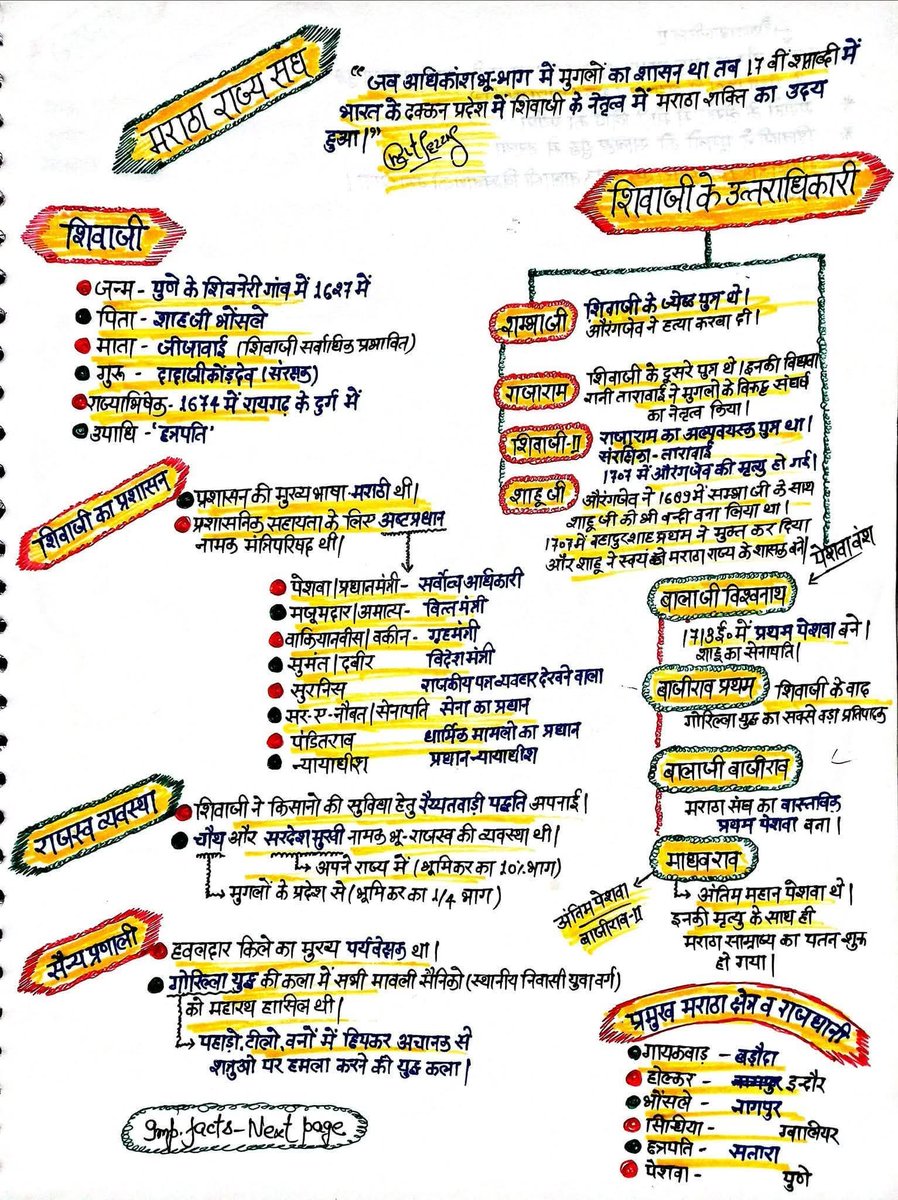 मराठा राज्य संघ
“जब अधिकांश भू-भाग में मुगलों का शासन था तब 17 वीं शताब्दी में
भारत के दक्कन प्रदेश में शिवाजी के नेतृत्व में मराठा शक्ति का उदय
हुआ।”
शिवाजी
जन्म - पुणे के शिवनेरी गांव में 1627 में
पिता - शाहजी भोंसले
माता - जीजाबाई (शिवाजी सर्वाधिक प्रभावित)
गुरू - दादाजीकोंड़देव (संरक्षक)
राज्याभिषेक - 1674 में रायगढ़ के दुर्ग में
उपाधि - 'छत्रपति'
शिवाजी का प्रशासन
प्रशासन की मुख्य भाषा मराठी थी।
प्रशासनिक सहायता के लिए अष्टप्रधान
नामक मंत्रिपरिषद थी।
पेशवा/प्रधानमंत्री - सर्वोच्च अधिकारी
मजूमदार/अमात्य - वित्त मंत्री
वाकियानवीस/वकीन - गृहमंत्री
सुमंत/दबीर विदेश मंत्री
सुरनिस राजकीय पत्र व्यवहार देखने वाला
सर-ए-नौबत/सेनापति सेना का प्रधान
पंडितराव धार्मिक मामलो का प्रधान
न्यायाधीश प्रधान न्यायाधीश
राजस्व व्यवस्था
शिवाजी ने किसानो की सुविधा हेतु रैय्यतवाड़ी पद्धति अपनाई।
चौथ और सरदेशमुखी नामक भू-राजस्व की व्यवस्था थी।
अपने राज्य में (भूमिकर का 10% भाग)
मुगलों के प्रदेश से (भूमिकर का 1/4 भाग)
सैन्य प्रणाली
हवलदार किले का मुख्य पर्यवेक्षक था।
गोरिल्ला युद्ध की कला में सभी मावली सैनिको (स्थानीय निवासी युवा वर्ग)
को महारथ हासिल थी।
पहाड़ो, टीलो, वनों में छिपकर अचानक से
शत्रुओ पर हमला करने की युद्ध कला।
Imp. facts - Next page
शिवाजी के उत्तराधिकारी
शम्भाजी
शिवाजी के ज्येष्ठ पुत्र थे।
औरंगजेब ने हत्या करवा दी।
राजाराम
शिवाजी के दूसरे पुत्र थे। इनकी विधवा
रानी ताराबाई ने मुगलो के विरुद्ध संघर्ष
का नेतृत्व किया।
शिवाजी-II
राजाराम का अल्पवयस्क पुत्र था।
संरक्षिका - ताराबाई
शाहू जी
1707 में औरंगजेब की मृत्यु हो गई।
औरंगजेब ने 1689 में सम्भा जी के साथ
शाहू जी को भी बन्दी बना लिया था।
1707 में बहादुरशाह प्रथम ने मुक्त कर दिया
और शाहू ने स्वयं को मराठा राज्य के शासक बने।
पेशवा वंश
बालाजी विश्वनाथ
1713 ई. में प्रथम पेशवा बने।
शाहू का सेनापति।
बाजीराव प्रथम
शिवाजी के बाद
गोरिल्ला युद्ध का सबसे बड़ा प्रतिपादक
बालाजी बाजीराव
मराठा संघ का वास्तविक
प्रथम पेशवा बना।
माधव राव
अंतिम महान पेशवा थे।
इनकी मृत्यु के साथ ही
मराठा साम्राज्य का पतन शुरू
हो गया।
अंतिम पेशवा
बाजीराव-II
प्रमुख मराठा क्षेत्र व राजधानी
गायकवाड़ - बड़ौदा
होल्कर - इन्दौर
भोंसले - नागपुर
सिन्धिया - ग्वालियर
छत्रपति - सतारा
पेशवा - पुणे